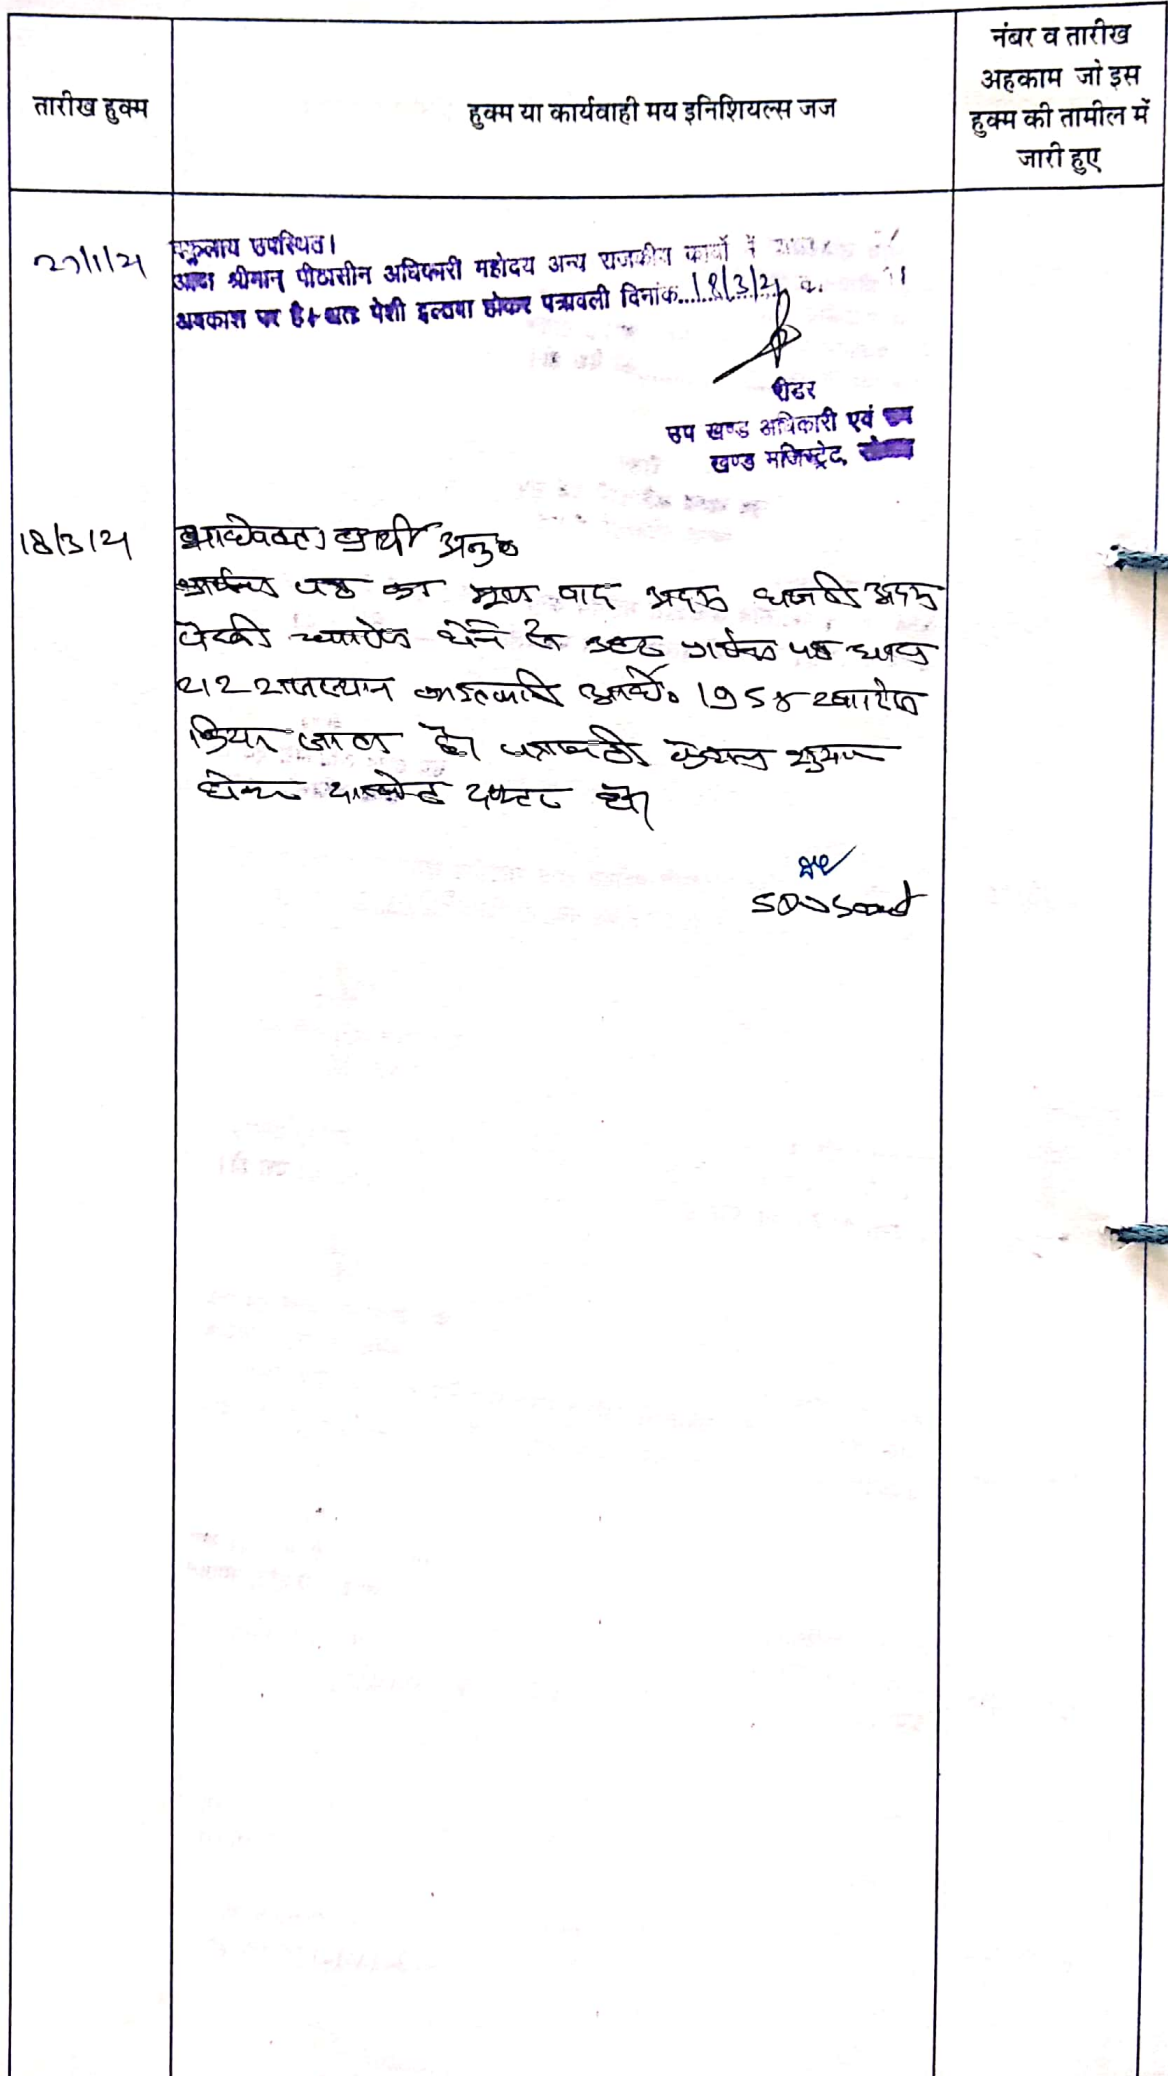 तारीख हुक्म
हुक्म या कार्यवाही मय इनिशियल्स जज
नंबर व तारीख
अहकाम जो इस
हुक्म की तामील में
जारी हुए
उपस्थित।
श्रीमान् पीठासीन अधिकारी महोदय अन्य राजकीय कार्यो में
अवकाश पर है। अतः पेशी इल्तवा होकर पत्रावली दिनांक...18/3/21
रीडर
उप खण्ड अधिकारी एवं उप
खण्ड मजिस्ट्रेट,
18/3/21
प्रार्थी अनु०
प्रार्थना पत्र का मूल वाद अदम अदम
खारिज होने से प्रार्थना पत्र धारा
212 राजस्थान काश्तकारी अधि० 195 खारिज
किया जाता है। पत्रावली फैसल शुमार
होकर दफ्तर हो।